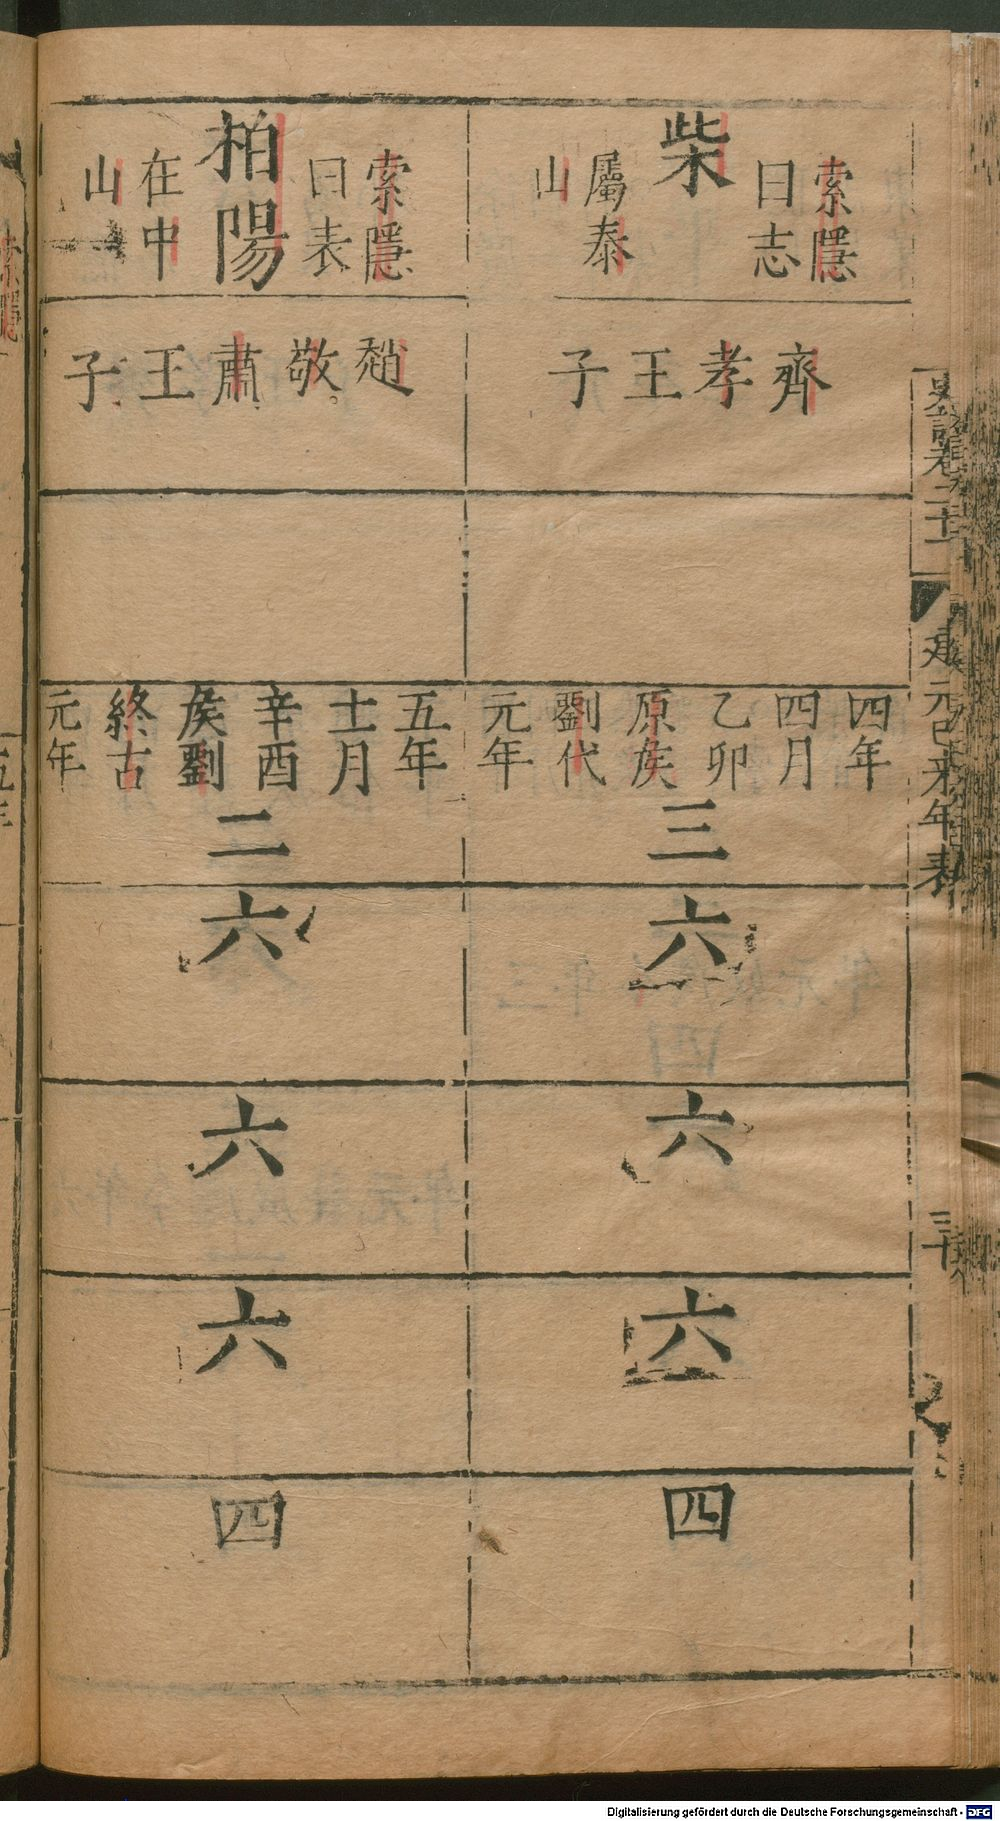 史記卷二十一
建元已來年表
三十
柴
索隱
曰志
屬泰
山
齊孝王子
四年
四月
乙卯
原矦
劉代
元年
三
六
六
六
四
柏陽
索隱
曰表
在中
山
趙敬肅王子
五年
十一月
辛酉
矦劉
終古
元年
二
六
六
六
四
Digitalisierung gefördert durch die Deutsche Forschungsgemeinschaft - DFG